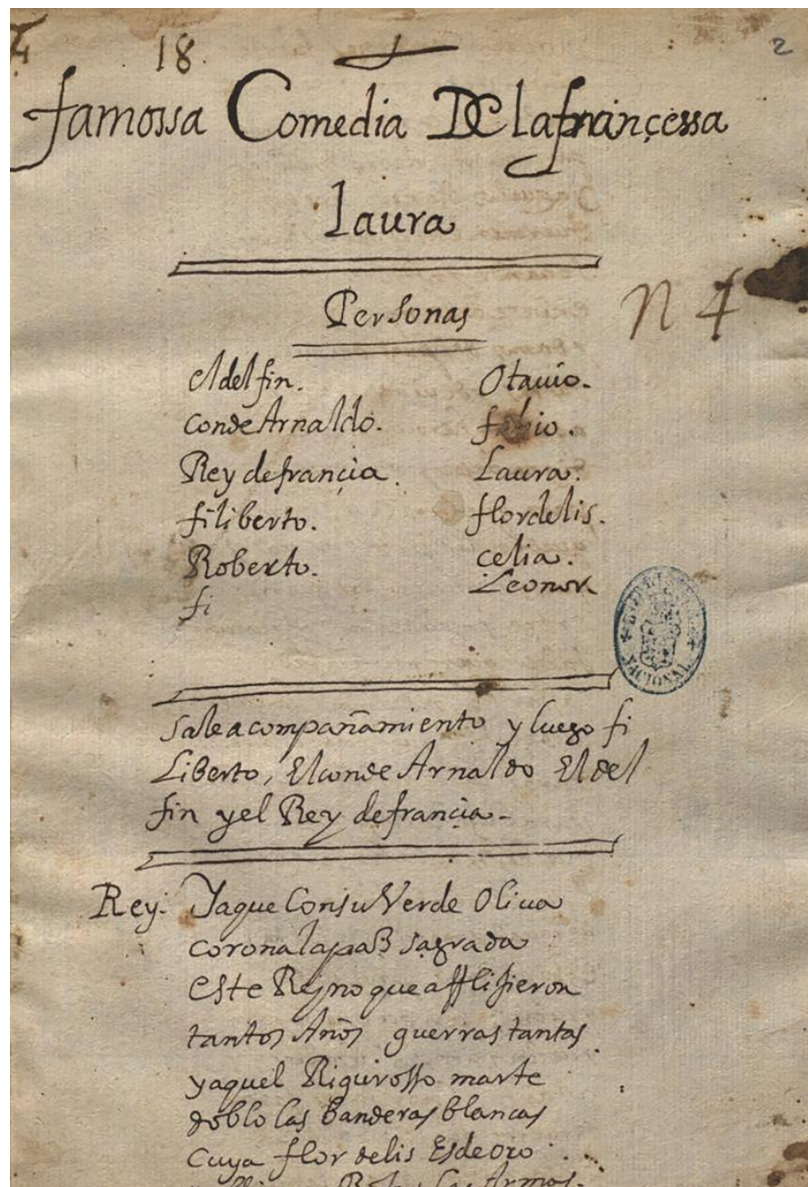 18.
2
famossa Comedia De la françessa
laura
Personas
n 4
el delfin.
conde Arnaldo.
Rey de françia.
filiberto.
Roberto.
fi
Otauio.
fabio.
Laura.
flordelis.
celia.
Leonor
BIBLIOTECA NACIONAL
Sale acompañamiento y luego fi
Liberto, El conde Arnaldo El del
fin y el Rey de françia.
Rey. Ya que Con su Verde Oliua
corona la paß sagrada
este Reyno que afflijieron
tantos Años guerras tantas
y aquel Riguroſſo marte
doblo las banderas blancas
cuya flor delis Es de oro
las Armas.